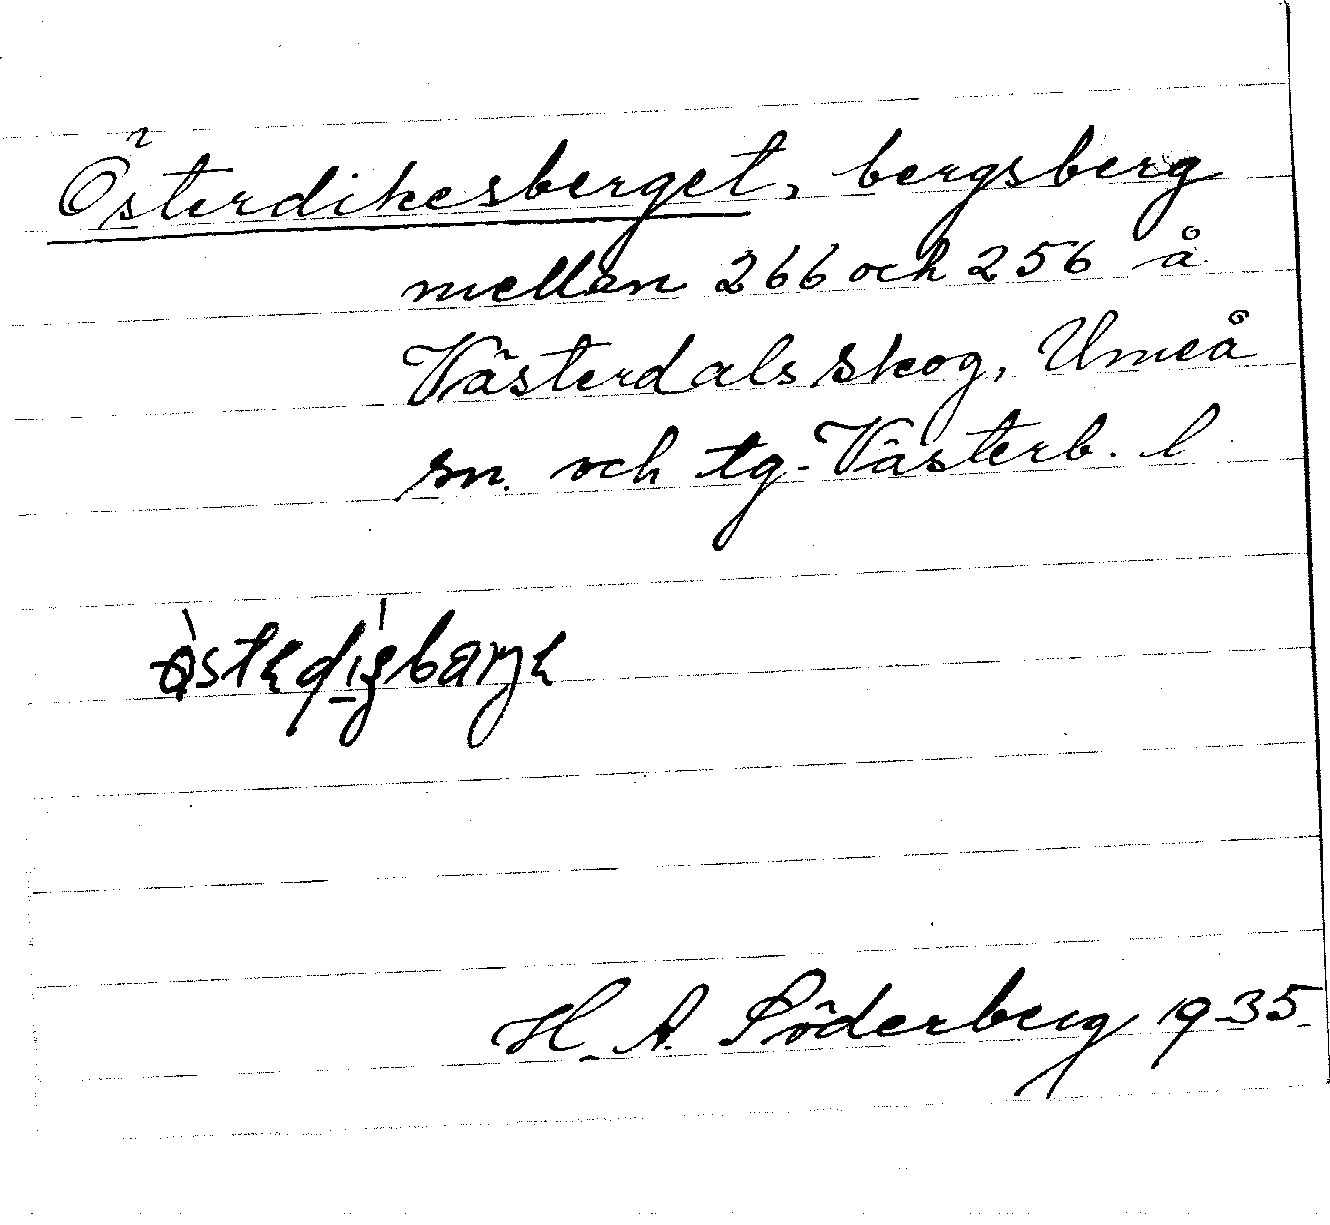 Österdikesberget, bergsberg
mellan 266 och 256 å
Västerdals skog, Umeå
sn. och tg. Västerb. l
H. A. Söderberg 1935